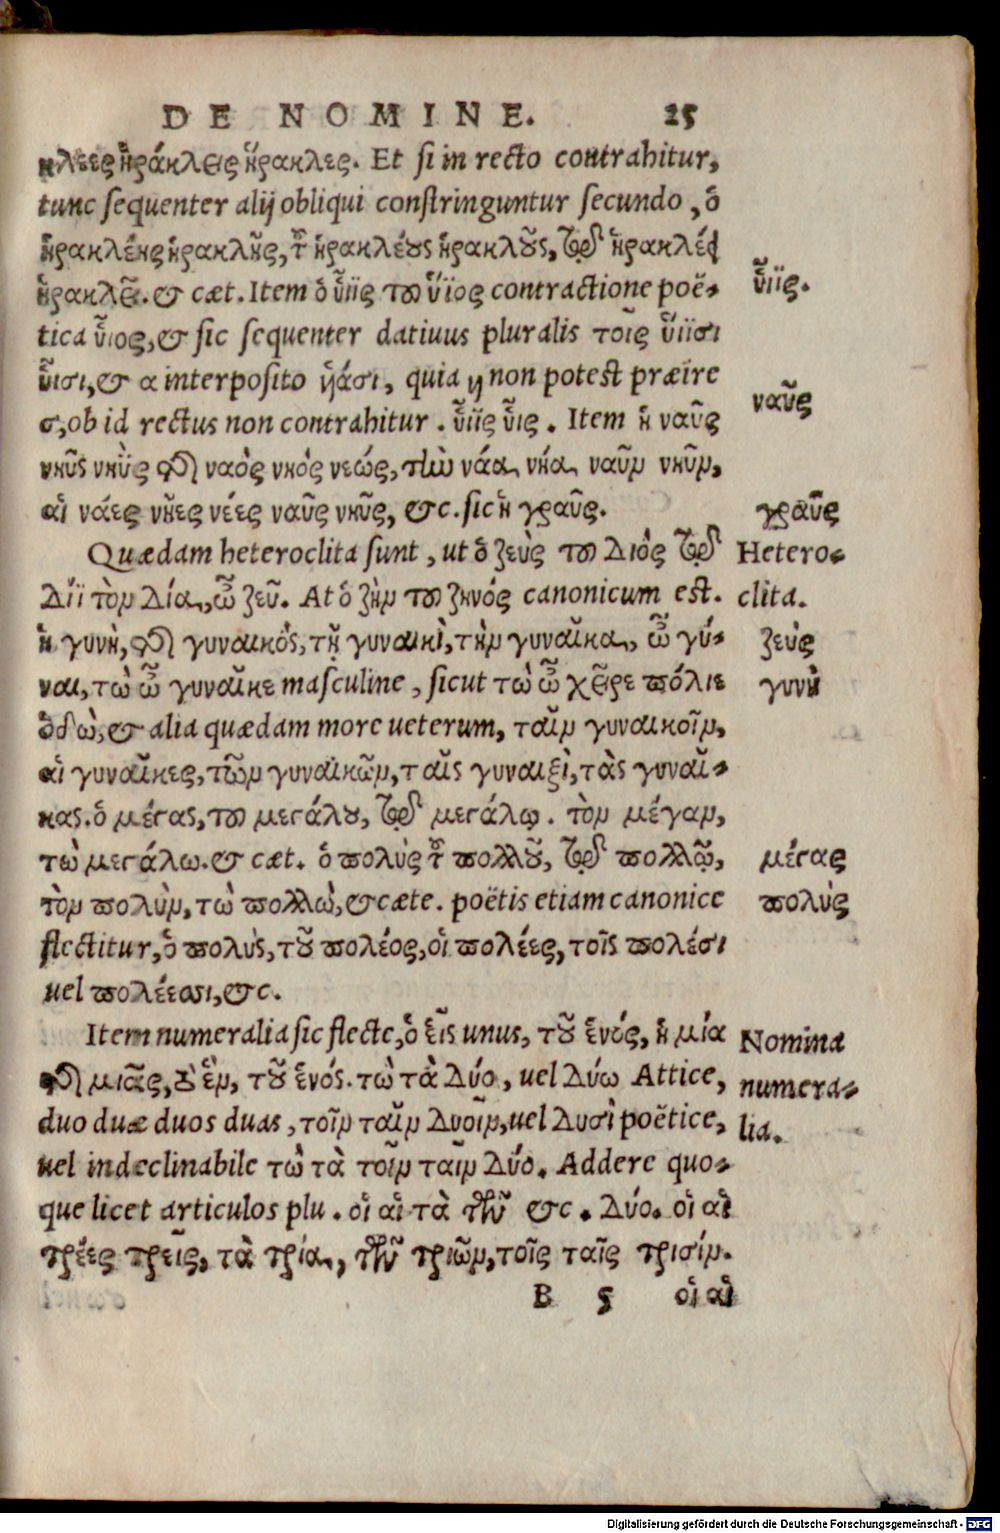 DE NOMINE. 25
κλέες ἡράκλεις ἥρακλες. Et si in recto contrahitur,
tunc sequenter alij obliqui constringuntur secundo, ὁ
ἡρακλέης ἡρακλῆς, τοῦ ἡρακλέους ἡρακλοῦς, τῷ ἡρακλέϊ
ἡρακλεῖ. & cæt. Item ὁ ὕϊις τοῦ ὕϊος contractione poë-
tica υἷος, & sic sequenter datiuus pluralis τοῖς ὕϊισι
υἷσι, & α interposito υἱάσι, quia υι non potest præire
σ, ob id rectus non contrahitur. ὕϊις υἷις. Item ἡ ναῦς
νηῦς νηῢς τῆς ναὸς νηὸς νεώς, τὴν νάα, νῆα, ναῦν νηῦν,
αἱ νάες νῆες νέες ναῦς νηῦς, &c. sic ἡ γραῦς.
Quædam heteroclita sunt, ut ὁ ζεὺς τοῦ Διὸς τῷ
Διῒ τὸν Δία, ὦ ζεῦ. At ὁ ζὴν τοῦ ζηνός canonicum est.
ἡ γυνὴ, τῆς γυναικός, τῇ γυναικὶ, τὴν γυναῖκα, ὦ γύ-
ναι, τὼ ὦ γυναῖκε masculine, sicut τὼ ὦ χεῖρε πόλιε
ὁδὼ, & alia quædam more ueterum, ταῖν γυναικοῖν,
αἱ γυναῖκες, τῶν γυναικῶν, ταῖς γυναιξὶ, τὰς γυναῖ-
κας. ὁ μέγας, τοῦ μεγάλου, τῷ μεγάλῳ. τὸν μέγαν,
τὼ μεγάλω. & cæt. ὁ πολὺς τοῦ πολλοῦ, τῷ πολλῷ,
τὸν πολὺν, τὼ πολλὼ, & cæte. poëtis etiam canonice
flectitur, ὁ πολὺς, τοῦ πολέος, οἱ πολέες, τοῖς πολέσι
uel πολέεσσι, &c.
Item numeralia sic flecte, ὁ εἷς unus, τοῦ ἑνός, ἡ μία
τῆς μιᾶς, τὸ ἓν, τοῦ ἑνός. τὼ τὰ Δύο, uel Δύω Attice,
duo duæ duos duas, τοῖν ταῖν Δυοῖν, uel Δυσὶ poëtice,
uel indeclinabile τὼ τὰ τοῖν ταῖν Δύο. Addere quo-
que licet articulos plu. οἱ αἱ τὰ τῶν &c. Δύο. οἱ αἱ
τρέες τρεῖς, τὰ τρία, τῶν τριῶν, τοῖς ταῖς τρισίν.
B 5 οἱ αἱ
ὕϊις.
ναῦς
γραῦς
Hetero-
clita.
ζεὺς
γυνὴ
μέγας
πολὺς
Nomina
numera-
lia.
Digitalisierung gefördert durch die Deutsche Forschungsgemeinschaft - DFG